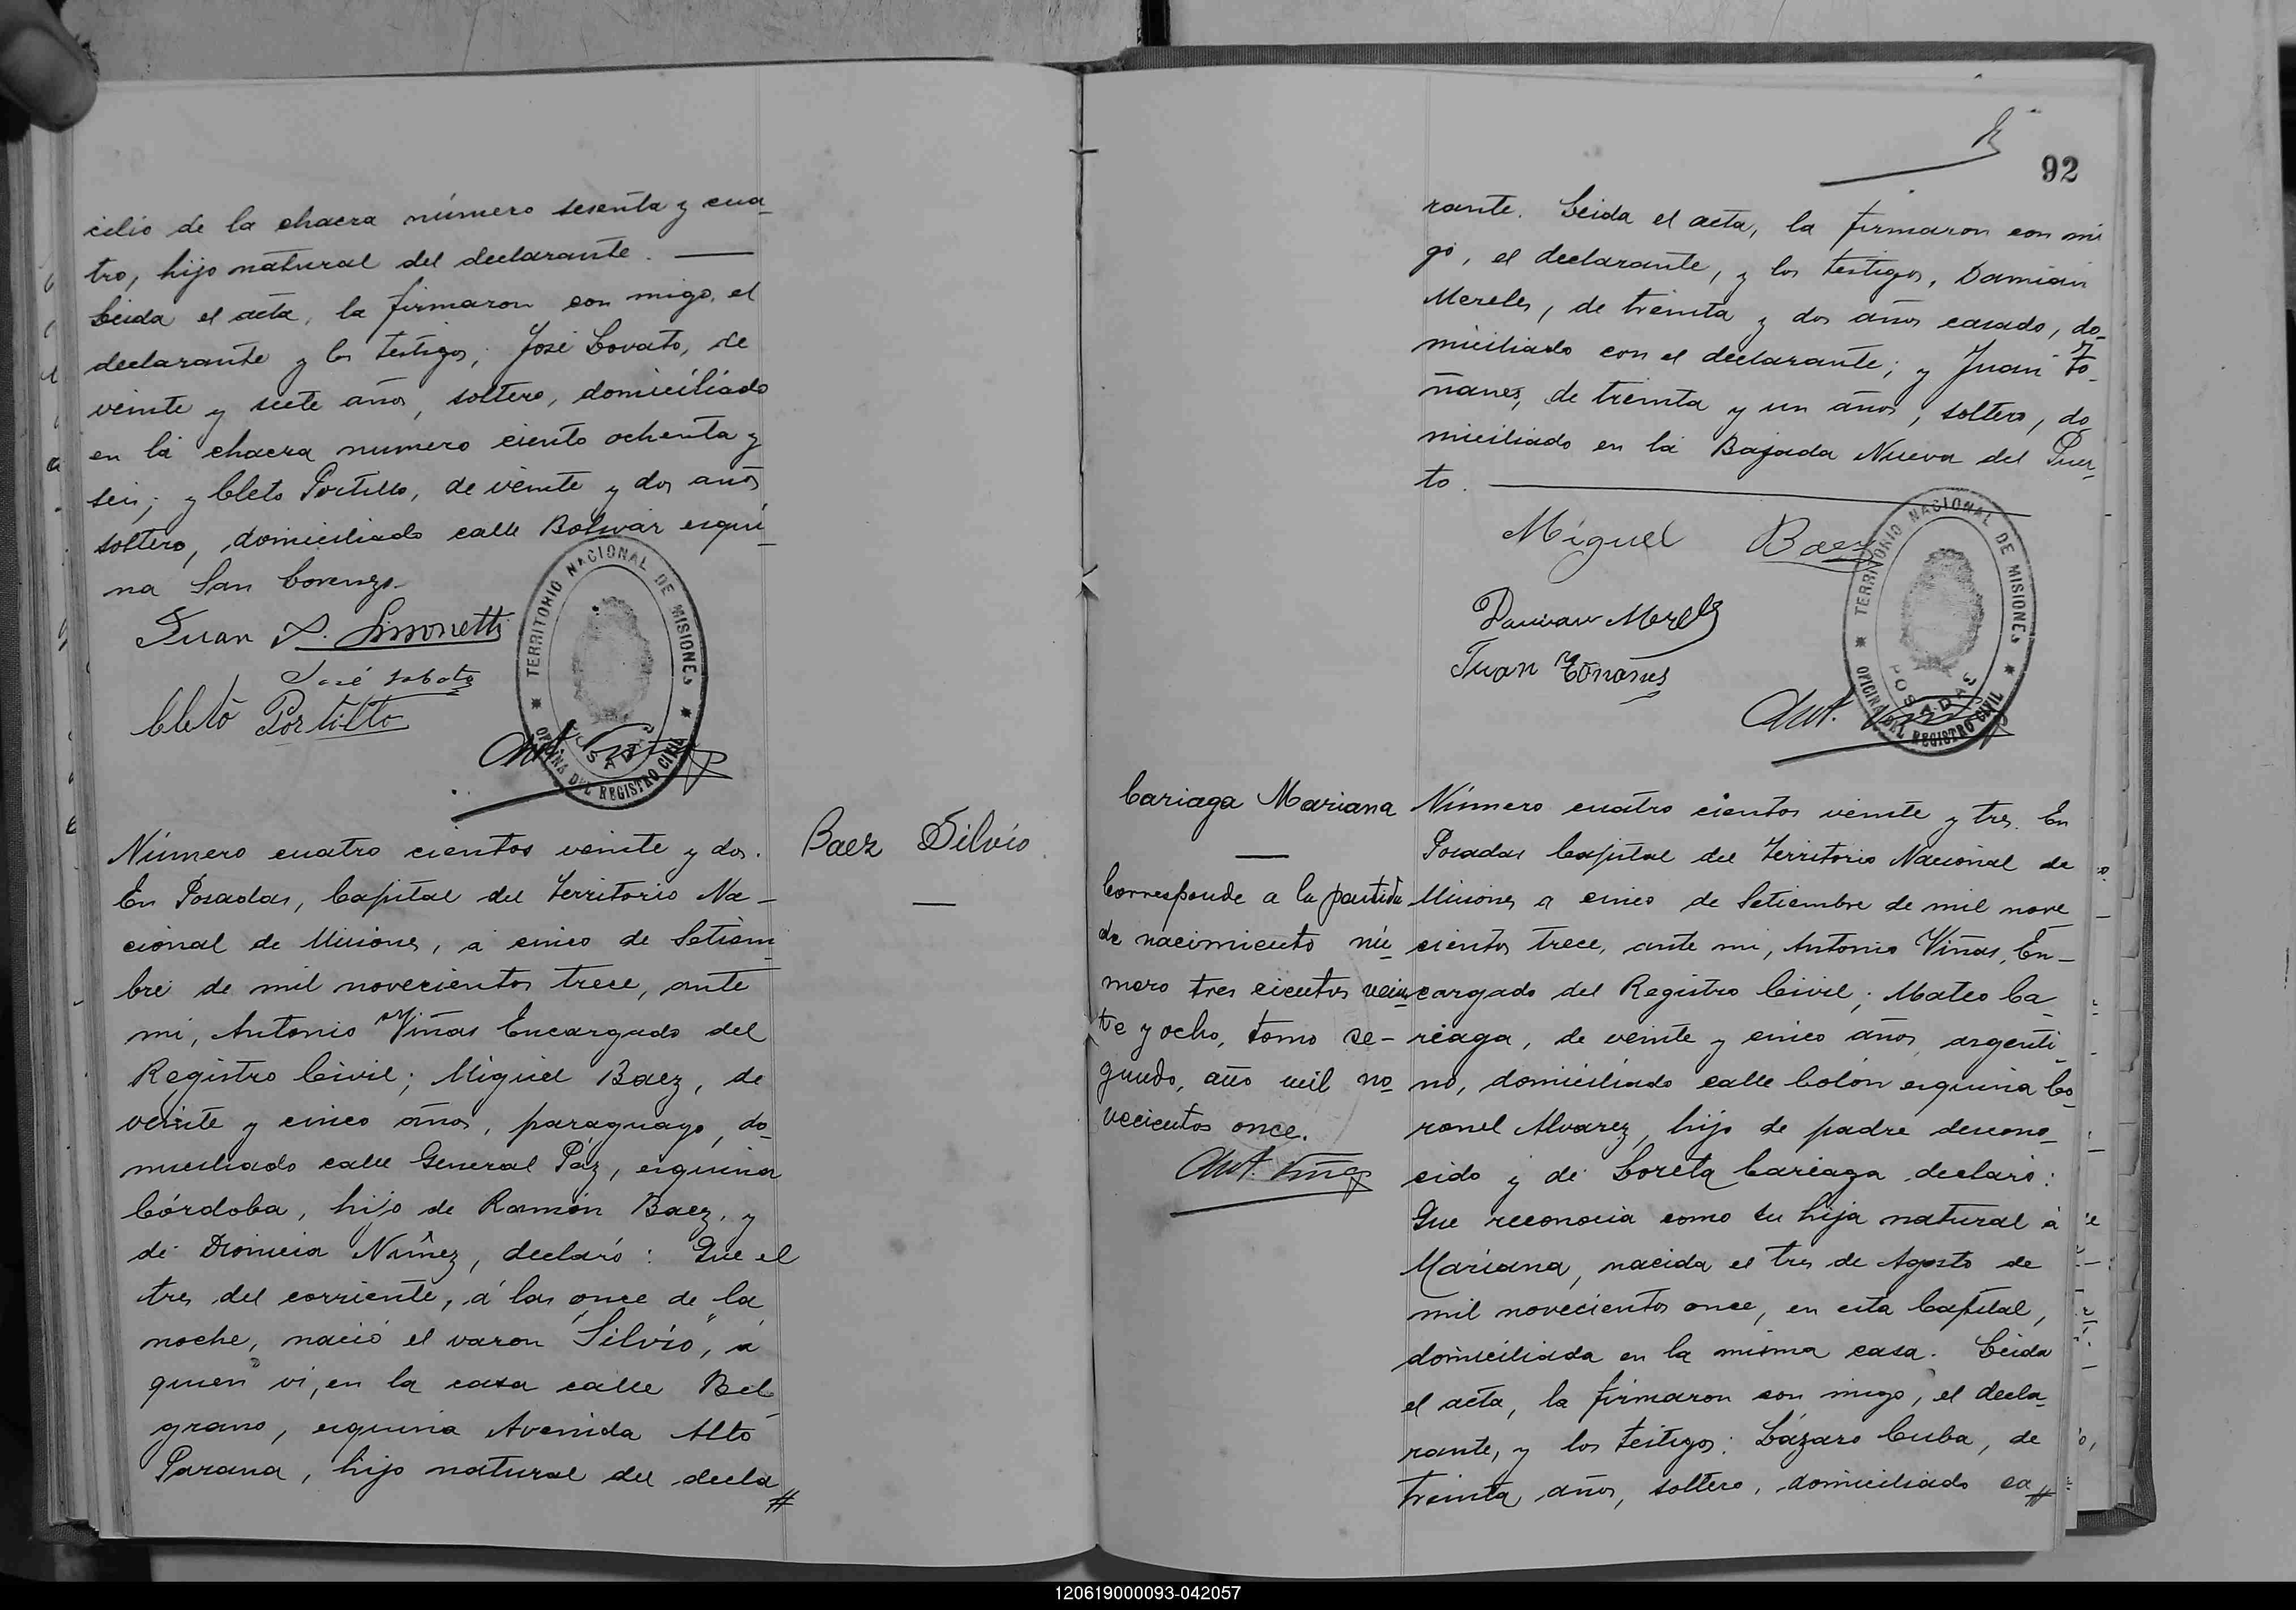 cilio de la chacra número sesenta y cua-
tro, hijo natural del declarante.
Leida el acta, la firmaron con migo, el
declarante y los testigos; José Lovato, de
veinte y siete años, soltero, domiciliado
en la chacra numero ciento ochenta y
seis; y Cleto Portillo, de veinte y dos años
soltero, domiciliado calle Bolivar esqui-
na San Lorenzo.
Juan P. Simonetti
José Lobato
Cleto Portillo
Ant. Viñas
TERRITORIO NACIONAL DE MISIONES
POSADAS
OFICINA DEL REGISTRO CIVIL
Baez Silvio
Número cuatro cientos veinte y dos.
En Posadas, Capital del Territorio Na-
cional de Misiones, á cinco de Setiem-
bre de mil novecientos trece, ante
mi, Antonio Viñas Encargado del
Registro Civil; Miguel Baez, de
veinte y cinco años, paraguayo, do-
miciliado calle General Paz, esquina
Córdoba, hijo de Ramón Baez, y
de Dionicia Nuñez, declaró: Que el
tres del corriente, á las once de la
noche, nació el varon "Silvio", á
quien vi, en la casa calle Bel-
grano, esquina Avenida Alto
Parana, hijo natural del decla
#
92
rante. Leida el acta, la firmaron con mi
go, el declarante, y los testigos, Damian
Mereles, de treinta y dos años casado, do-
miciliado con el declarante; y Juan To-
ñanes, de treinta y un años, soltero, do
miciliado en la Bajada Nueva del Puer-
to.
Miguel Baez
Damian Mereles
Juan Toñanes
Ant. Viñas
TERRITORIO NACIONAL DE MISIONES
POSADAS
OFICINA DEL REGISTRO CIVIL
Cariaga Mariana
Corresponde a la partida
de nacimiento nú-
mero tres cientos vein-
te y ocho, tomo se-
gundo, año mil no-
vecientos once.
Ant. Viñas
Número cuatro cientos veinte y tres. En
Posadas Capital del Territorio Nacional de
Misiones a cinco de Setiembre de mil nove
cientos trece, ante mi, Antonio Viñas, En-
cargado del Registro Civil; Mateo Ca-
riaga, de veinte y cinco años, argenti-
no, domiciliado calle Colón esquina Co-
ronel Alvarez, hijo de padre descono-
cido y de Loreta Cariaga declaró:
Que reconocia como su hija natural á
Mariana, nacida el tres de Agosto de
mil novecientos once, en esta Capital,
domiciliada en la misma casa. Leida
el acta, la firmaron con migo, el decla-
rante, y los testigos: Lázaro Cuba, de
treinta años, soltero, domiciliado ca
#
120619000093-042057